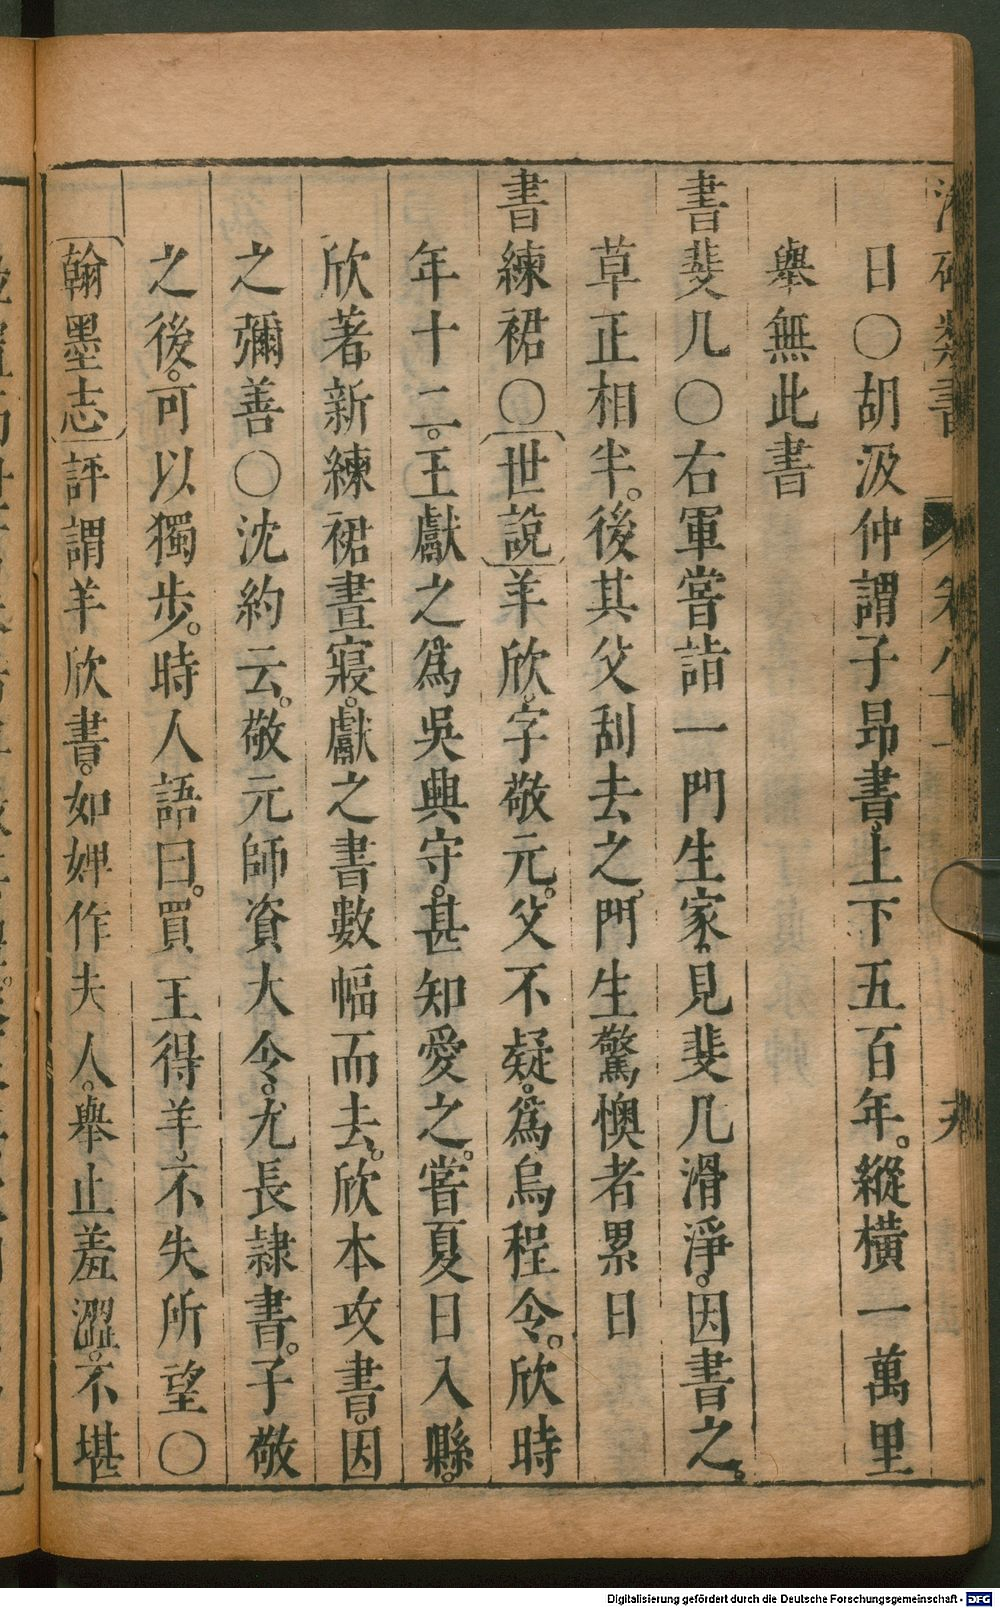 日〇胡汲仲謂子昻書上下五百年。縱橫一萬里
舉無此書
書棐几〇右軍嘗詣一門生家、見棐几滑淨。因書之。
草正相半。後其父刮去之、門生驚懊者累日
書練裙〇世說羊欣、字敬元。父不疑。爲烏程令。欣時
年十二。王獻之爲吳興守。甚知愛之。嘗夏日入縣。
欣著新練裙晝寢。獻之書數幅而去。欣本攻書。因
之彌善〇沈約云。敬元師資大令。尤長隷書。子敬
之後。可以獨步。時人語曰。買王得羊、不失所望〇
翰墨志評謂羊欣書。如婢作夫人。舉止羞澀。不堪
Digitalisierung gefördert durch die Deutsche Forschungsgemeinschaft - DFG